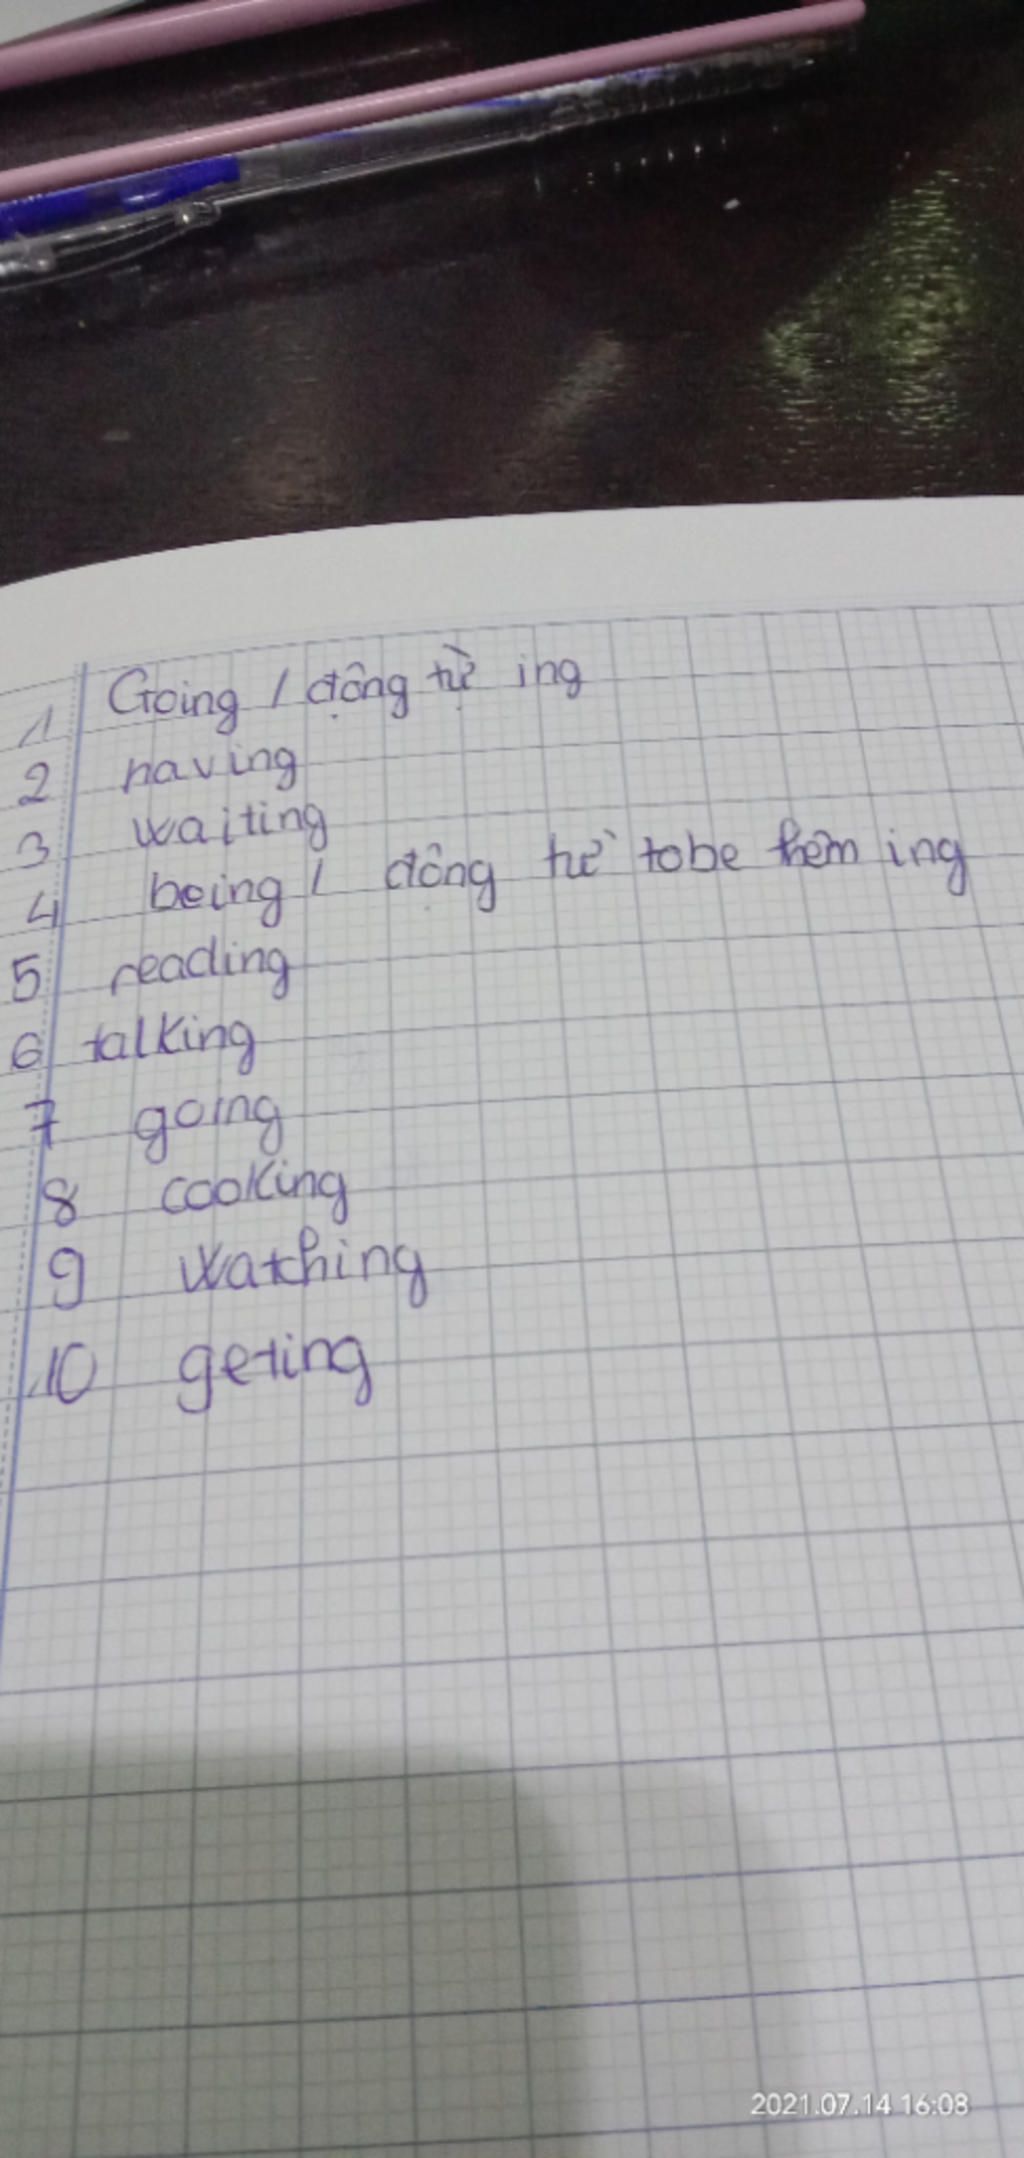 1 Going / động từ ing
2 having
3 waiting
4 being / động từ tobe thêm ing
5 reading
6 talking
7 going
8 cooking
9 watching
10 geting
2021.07.14 16:08